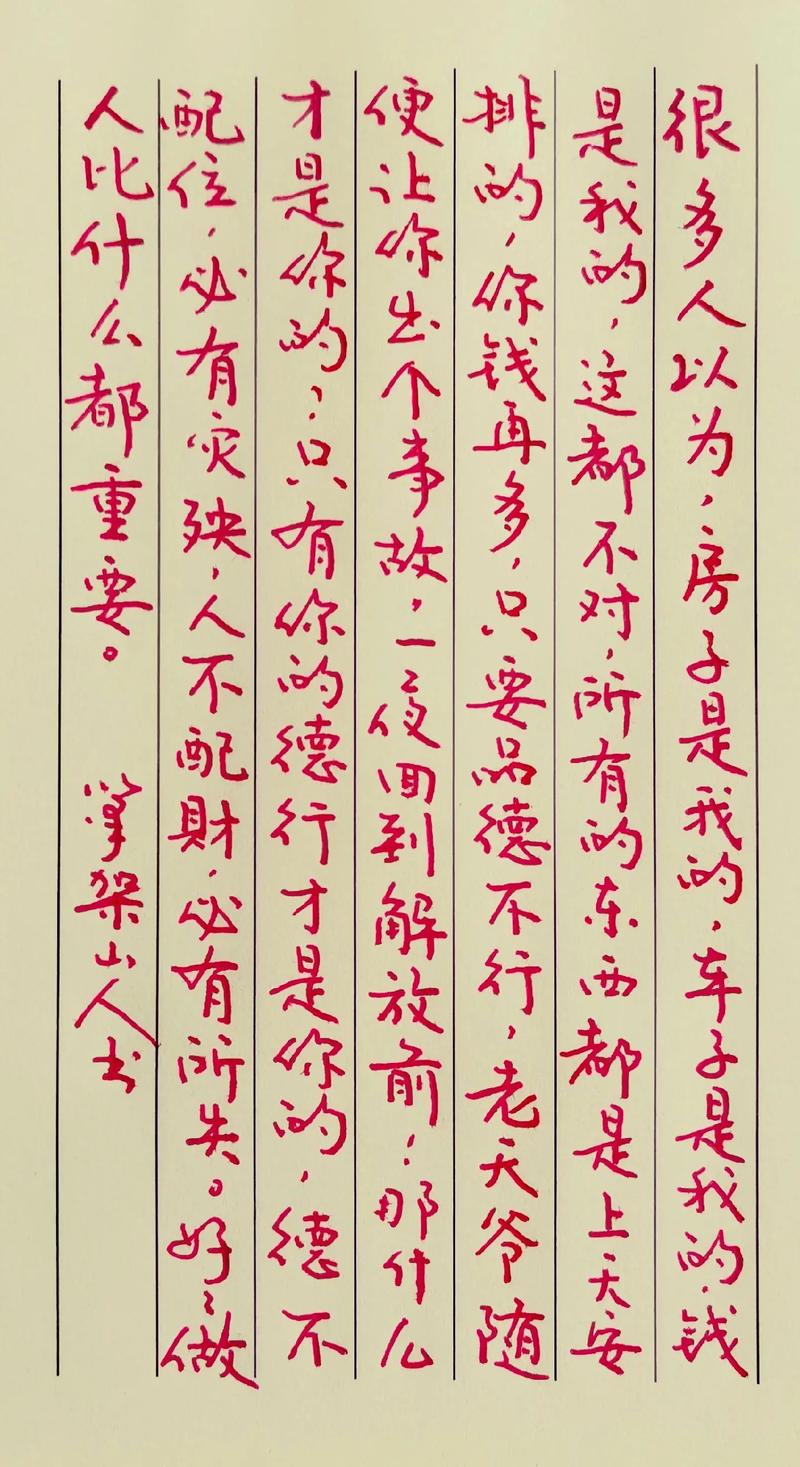 很多人以为，房子是我的，车子是我的，钱
是我的，这都不对，所有的东西都是上天安
排的，你钱再多，只要品德不行，老天爷随
便让你出个事故，一夜回到解放前；那什么
才是你的；只有你的德行才是你的，德不
配位，必有灾殃，人不配财，必有所失。好〻做
人比什么都重要。 笔架山人书